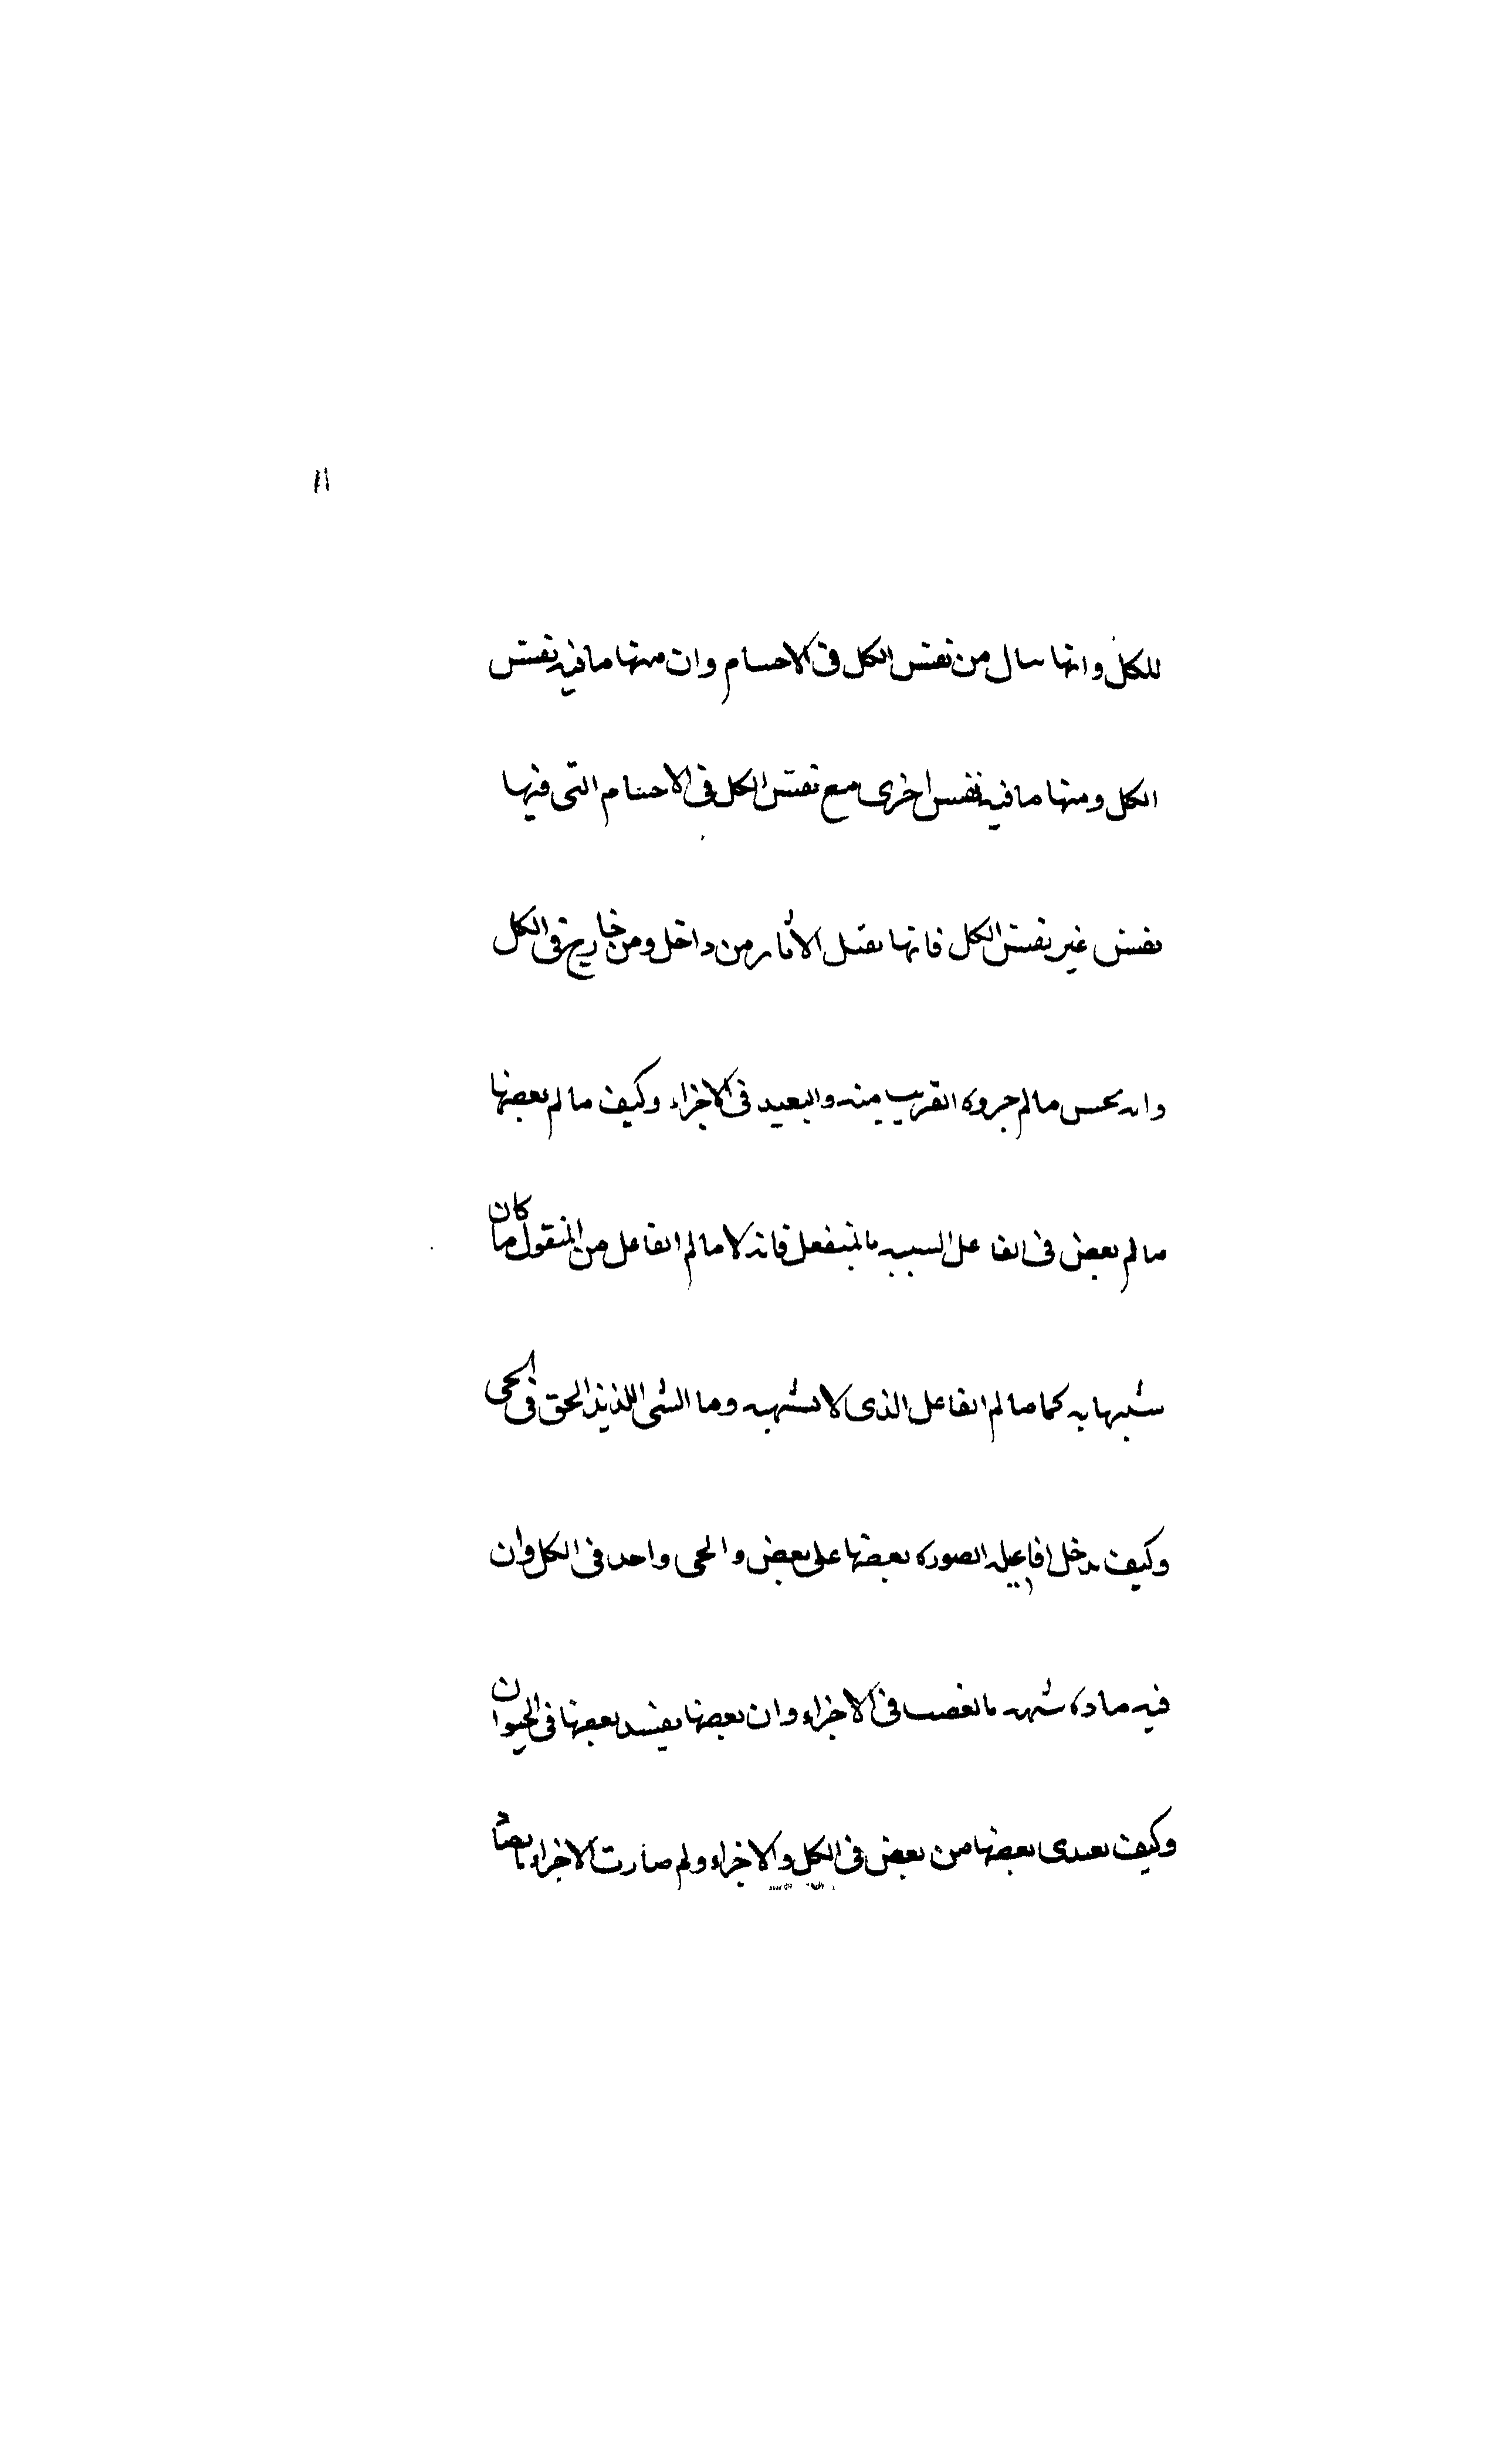 ١١
للكل وانها سال من نفس الكل فى الاجسام وان منها ما فيه نفس
الكل ومنها ما فيه نفس اخرى مع نفس الكل فى الاجسام التى فيها
نفس غير نفس الكل فانها تقبل الآثار من داخل ومن خارج فى الكل
وانه يحس مالم جزوه القريب منه والبعيد فى الاجزاء وكيف مالم بعضها
مالم بعض فى الفاعل الشبيه بالمنفعل فانه لا مالم الفاعل من المنفعل ما كان
شبيها به كما مالم الفاعل الذى لا يشبهه وما الشى اللذيذ الحق فى الحى
وكيف يدخل افاعيله الصوره بعضها على بعض والحى واحد فى الكل وان
فيه ماده شبهه بالغضب فى الاجزاء وان بعضها يفسد بعضها فى الحيوان
وكيف تعدى بعضها من بعض فى الكل والاجزاء ولم صارت الاجزاء